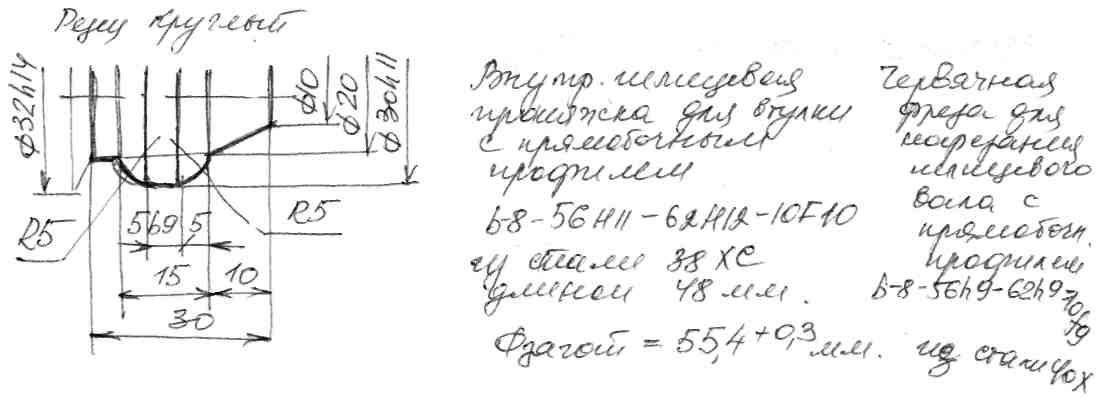 Резец круглый
ф32h14
ф10
ф20
ф30h11
R5
5h9
5
R5
15
10
30
Внутр. шлицевая
протяжка для втулки
с прямобочным
профилем
b-8-56H11-62H12-10F10
из стали 38ХС
длиной 48 мм.
Фзагот = 55,4+0,3 мм.
Червячная
фреза для
нарезания
шлицевого
вала с
прямобочн.
профилем
b-8-56h9-62h9-10f9
из стали 40Х